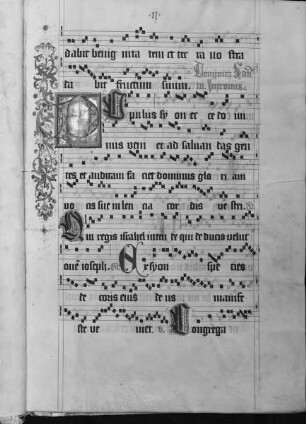 ·II·
dabit benig nita tem et ter ra no stra
Dominica secunda
ta bit fructum suum. in
Opulus sy on ec ce do mi
nus veni et ad saluan das gen
tes et auditam fa ciet dominus glo ri am
vo cis sue in leti cia cor dis ve stri.
Qui regis israhel inten de qui de ducis velut
ouem ioseph. Ex syon spe cies
de coris eius de us manife
ste ve niet. v. Congrega